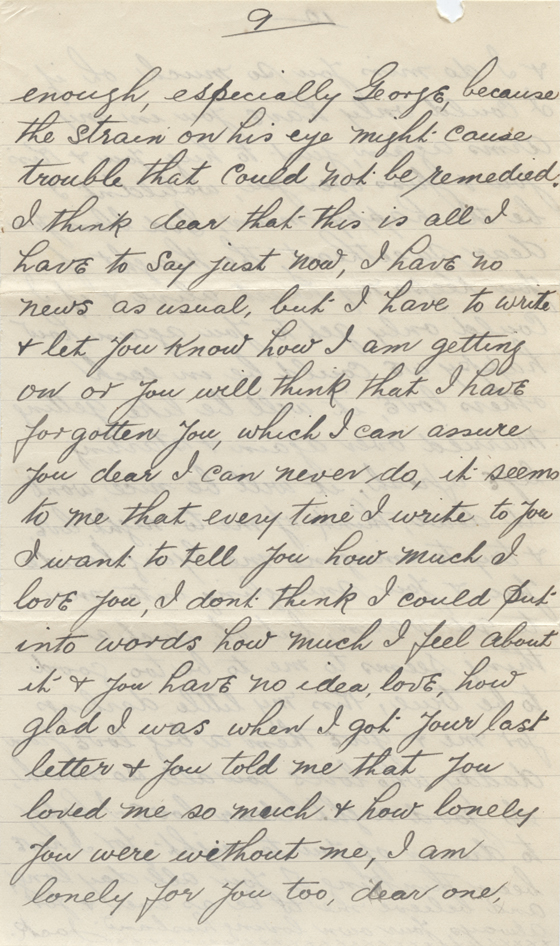 9
enough, especially George, because
the strain on his eye might cause
trouble that could not be remedied.
I think dear that this is all I
have to say just now, I have no
news as usual, but I have to write
& let you know how I am getting
on or you will think that I have
forgotten you, which I can assure
you dear I can never do, it seems
to me that every time I write to you
I want to tell you how much I
love you, I dont think I could put
into words how much I feel about
it & you have no idea, love, how
glad I was when I got your last
letter & you told me that you
loved me so much & how lonely
you were without me, I am
lonely for you too, dear one,